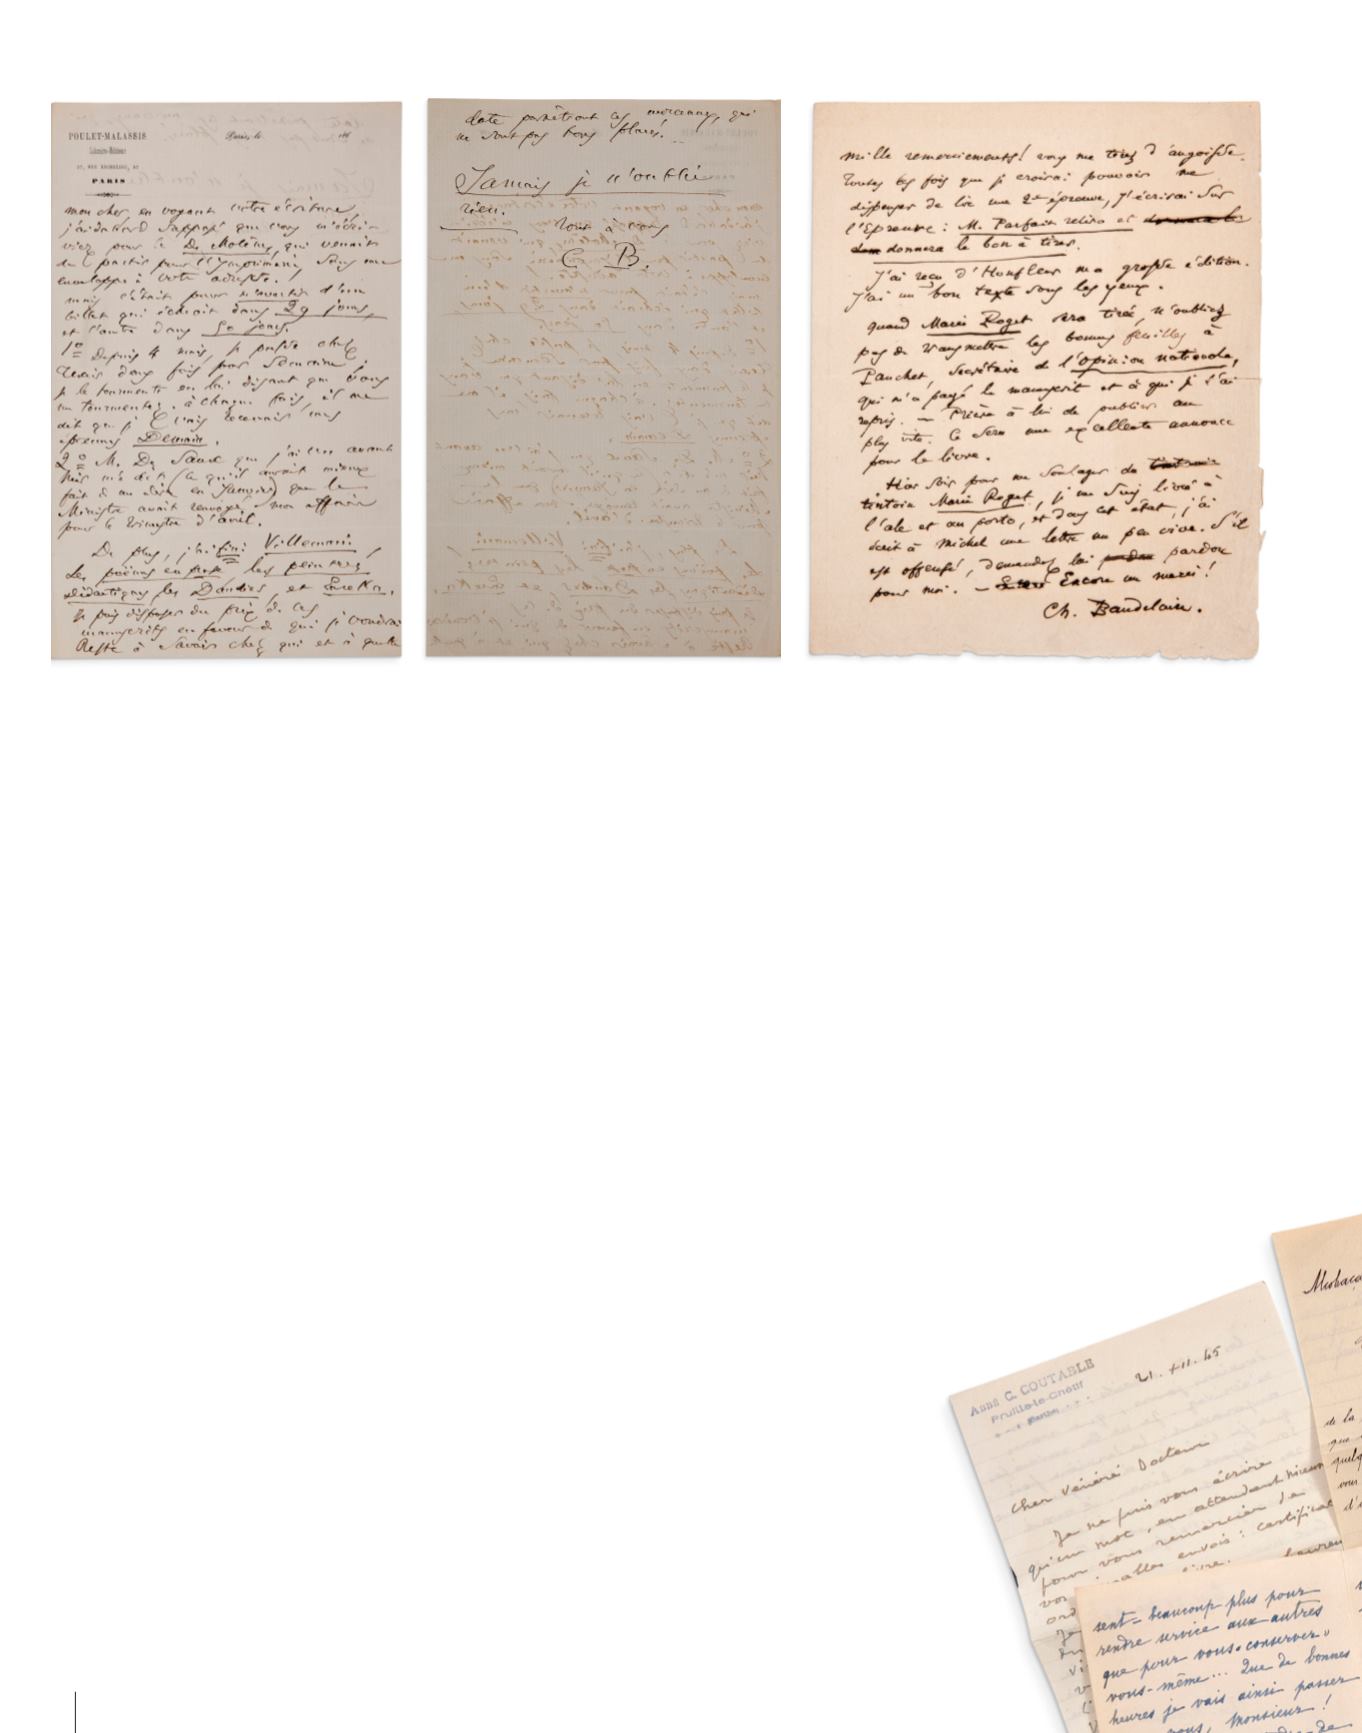 POULET-MALASSIS
Libraire-Éditeur
97, RUE RICHELIEU, 97
PARIS
Paris, le 186
mon cher, en voyant votre écriture,
j'ai d'abord supposé que vous m'écri-
viez pour le De Molènes, qui venait
de partir pour l'Imprimerie sous une
enveloppe à votre adresse.
mais c'était pour m'avertir d'un
billet qui échoit dans 29 jours,
et l'autre dans 50 jours.
1º Depuis 4 mois, je passe chez
deux fois par Semaine.
je le tourmente en lui disant que vous
me tourmentez. à chaque fois, il me
dit que je vais recevoir mes
épreuves Demain.
2º M. De Saux que j'ai vu avant
hier m'a dit (ce qu'il aurait mieux
fait de me dire en Janvier) que le
Ministre avait renvoyé mon affaire
pour le trimestre d'avril.
De plus, j'ai fini Villemain,
Les poëmes en prose, les peintres
didactiques, les Dandies, et Eureka.
Je puis disposer du prix de ces
manuscrits en faveur de qui je voudrai
Reste à savoir chez qui et à quelle
date paraîtront ces morceaux, qui
ne sont pas bons plaire!...
Jamais je n'oublie
rien.
tout à vous
C. B.
mille remerciements! vous me tirez d'angoisse.
Toutes les fois que je croirai pouvoir me
dispenser de lire une 2e épreuve, j'écrirai sur
l'Epreuve : M. Parfait relira et
donnera le bon à tirer.
J'ai reçu d'Honfleur ma grosse édition.
J'ai un bon texte sous les yeux.
quand Marie Roget sera tirée, n'oubliez
pas de transmettre les bonnes feuilles à
Pauchet, secrétaire de l'Opinion nationale,
qui m'a payé le manuscrit et à qui je l'ai
repris. — Prière à lui de publier au
plus vite. Ce sera une excellente annonce
pour le livre.
Hier soir pour me soulager du
tintouin Marie Roget, je me suis livré à
l'ale et au porto, et dans cet état, j'ai
écrit à Michel une lettre un peu vive. S'il
est offensé, demandez lui pardon
pour moi. — Encore un merci!
Ch. Baudelaire.
Anna C. COUTABLE
Pruillé-le-Chétif
21. XII. 45
Cher Vénéré Docteur
Je ne puis vous écrire
qu'un mot, en attendant mieux
pour vous remercier de
vos
envois : certificat
sent – beaucoup plus pour
rendre service aux autres
que pour vous conserver
vous-même... Que de bonnes
heures je vais ainsi passer
vous, Monsieur !
de la
que
quelq
vous